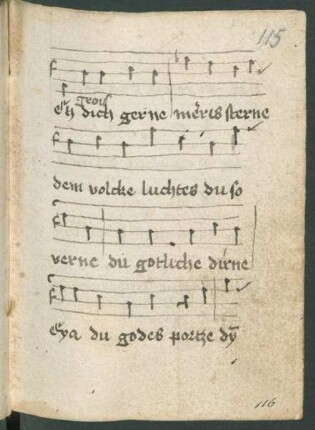 115
grous
Ich dich gerne meris sterne
dem volcke luchtes du so
verne du gotliche dirne
Eya du godes portze dy
116